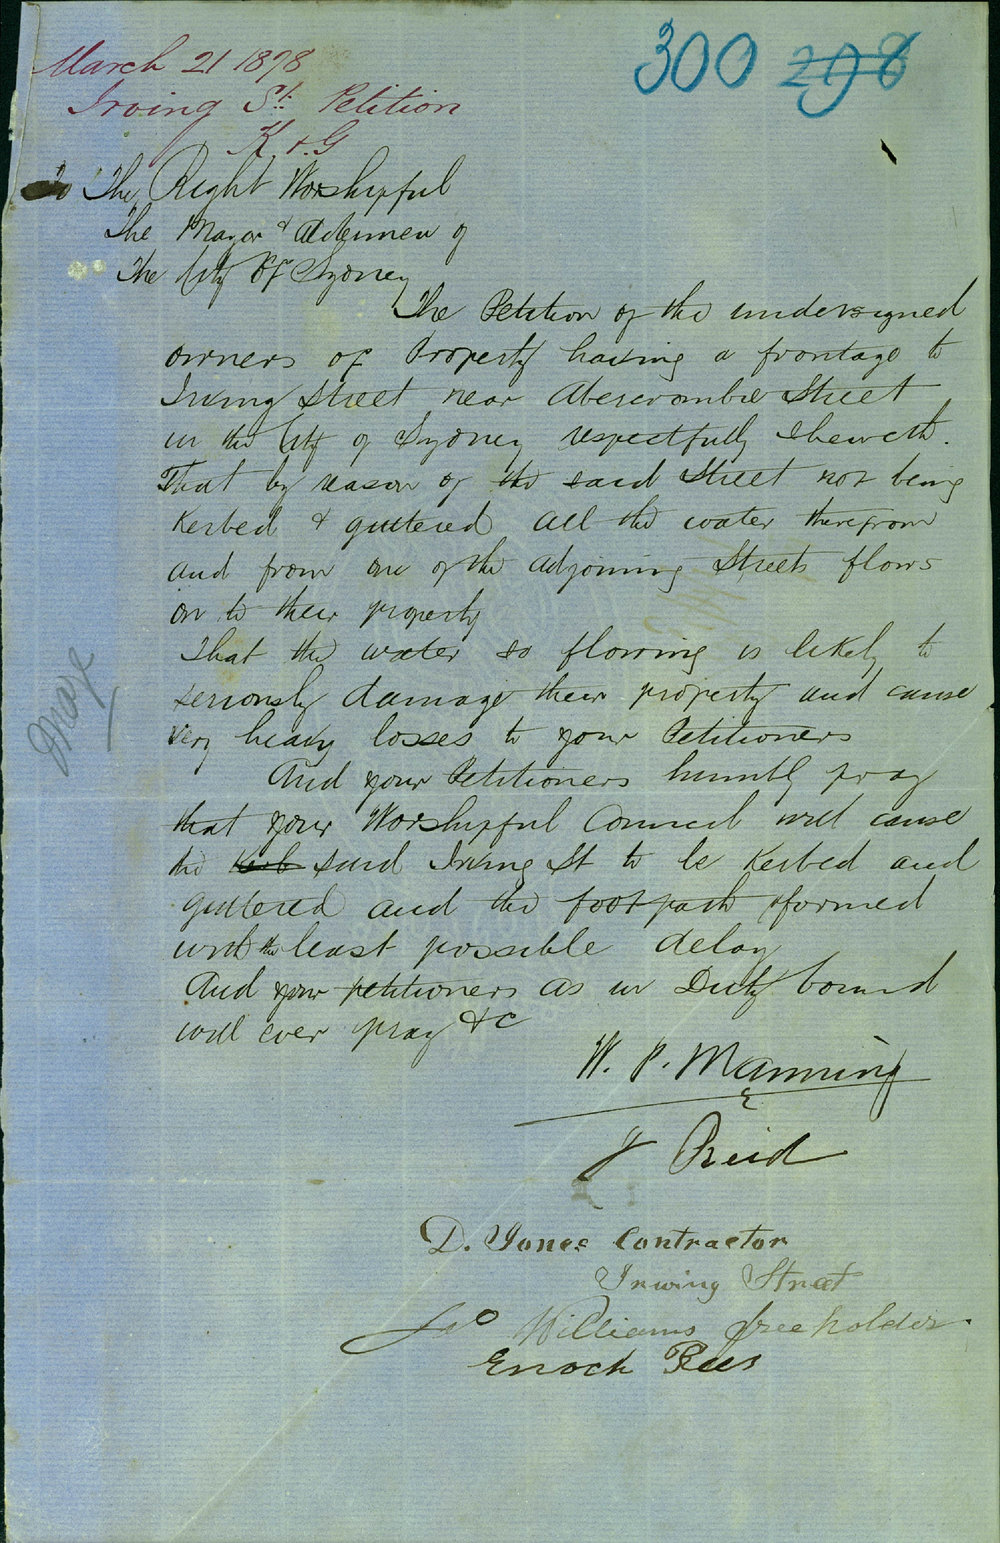 300 298
March 21 1878
Irving St. Petition
K & G
To The Right Worshipful
The Mayor & Aldermen of
The City of Sydney
The Petition of the undersigned
owners of Property having a frontage to
Irving Street near Abercrombie Street
in the City of Sydney respectfully sheweth.
That by reason of the said Street not being
Kerbed & guttered all the water therefrom
and from one of the adjoining Streets flows
on to their property
That the water so flowing is likely to
seriously damage their property and cause
very heavy losses to your Petitioners
And your Petitioners humbly pray
that your Worshipful Council will cause
the Kerb said Irving St to be Kerbed and
guttered and the footpath formed
with the least possible delay
And your petitioners as in Duty bound
will ever pray &c
W. P. Manning
J Reid
D. Jones Contractor
Irwing Street
Jno Williams freeholder.
Enoch Rees